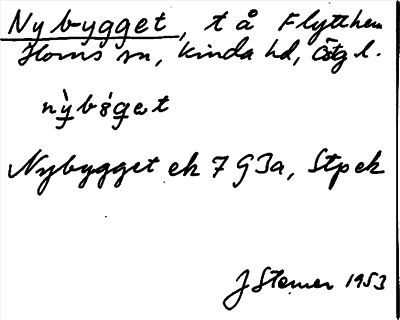 Nybygget, t å Flytthem
Horns sn, Kinda hd, Östg l.
nỳbøg̣et
Nybygget ek 7 G 3a, Stpek
J Stemer 1953